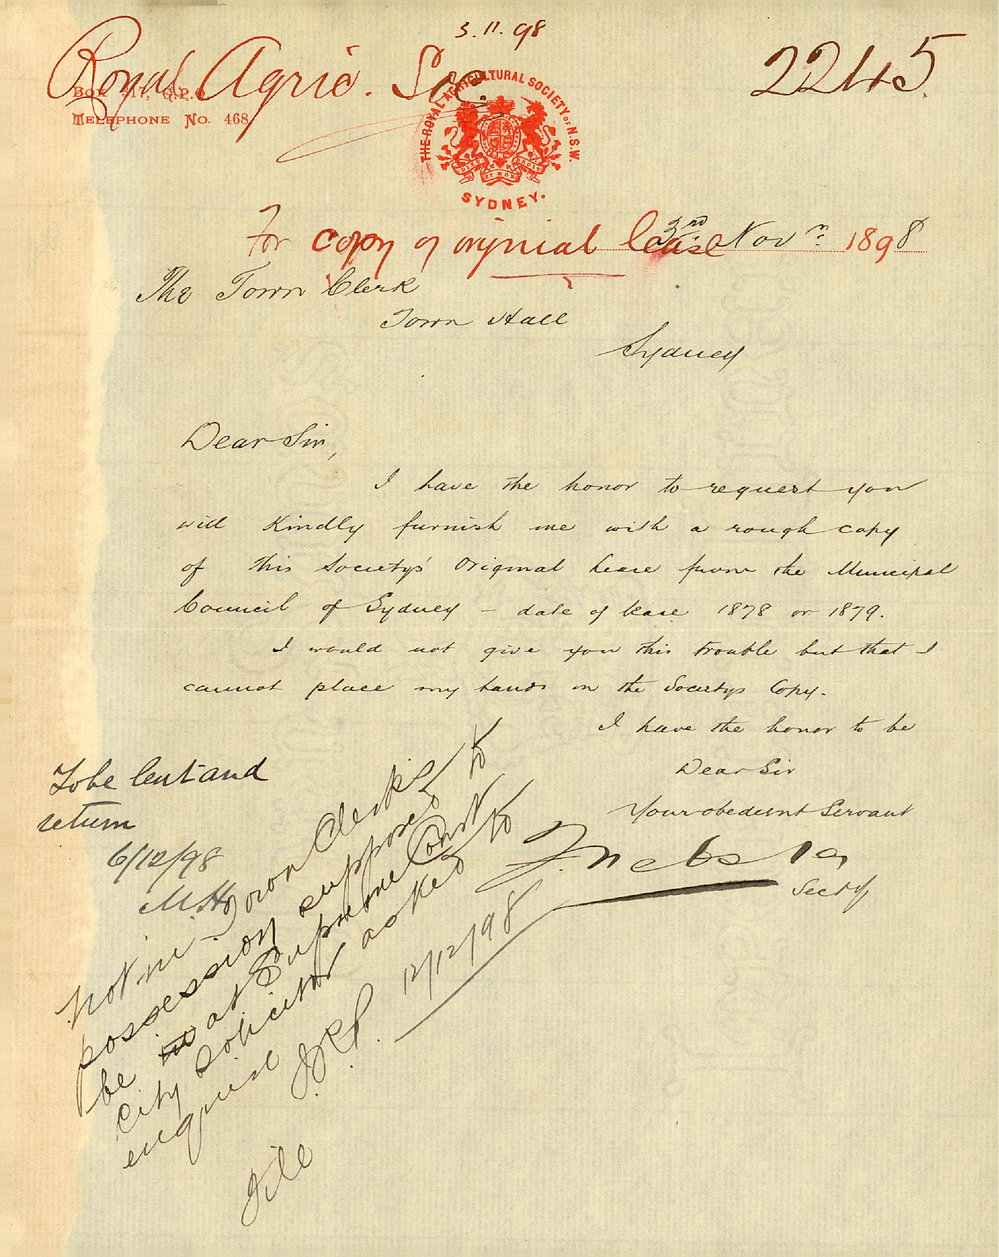 3.11.98
Royal Agric. Soc.
2245
Box 317, G.P.O.
Telephone No. 468
THE ROYAL AGRICULTURAL SOCIETY OF N.S.W.
SYDNEY.
DIEU ET MON DROIT
For copy of original lease
3rd Novr. 1898
The Town Clerk
Town Hall
Sydney
Dear Sir,
I have the honor to request you
will Kindly furnish me with a rough copy
of this Society's Original Lease from the Municipal
Council of Sydney – date of lease 1878 or 1879.
I would not give you this trouble but that I
cannot place my hands on the Society's Copy.
I have the honor to be
Dear Sir
Your obedient Servant
F. Webster
Secty
To be lent and
return
6/12/98
M.H.
Not in Town Clerk's
possession supposed to
be at Supreme Court
City Solicitor asked to
enquire
12/12/98
File